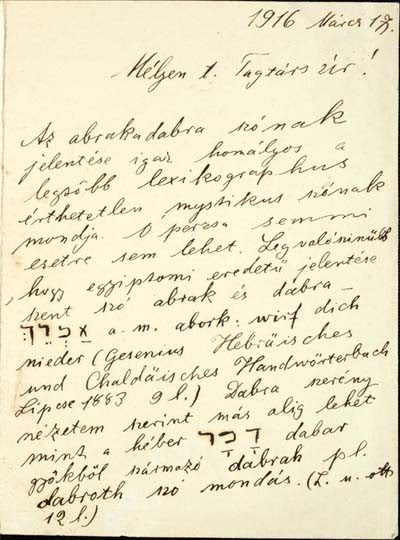 1916 Márcz 17.
Mélyen t. Tagtárs úr!
Az abrakadabra szónak
jelentése igaz homályos a
legtöbb lexikographus
érthetetlen mystikus szónak
mondja. Ó persa semmi
esetre sem lehet. Legvalószinűbb
, hogy egyiptomi eredetű jelentése
szent szó abrak és dabra –
אַבְרֵךְ a. m. abork: wirf dich
nieder (Gesenius Hebräisches
und Chaldäisches Handwörterbach
Lipcse 1883 9 l.) Dabra szerény
nézetem szerint más alig lehet
mint a héber דָּבָר dabar
gyökből származó dabrah pl.
dabroth szó mondás. (L. u. ott
12 l.)